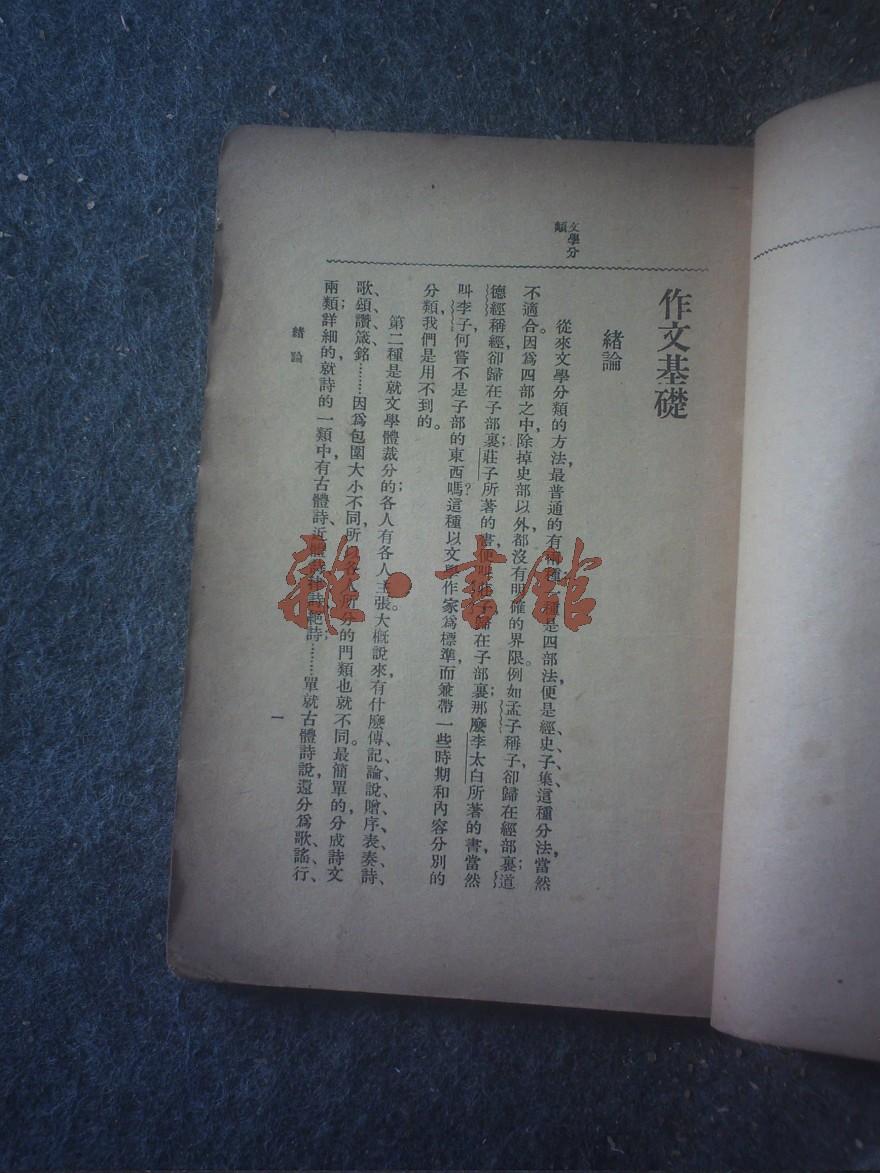 作文基礎
緒論
文學分
類
從來文學分類的方法，最普通的有兩種；一種是四部法，便是經、史、子、集。這種分法，當然
不適合。因爲四部之中，除掉史部以外，都沒有明確的界限。例如孟子稱子，卻歸在經部裏；道
德經稱經，卻歸在子部裏；莊子所著的書，便叫莊子，歸在子部裏；那麼李太白所著的書，當然
叫李子，何嘗不是子部的東西嗎？這種以文學作家爲標準，而兼帶一些時期和內容分別的
分類，我們是用不到的。
第二種是就文學體裁分的；各人有各人主張。大概說來，有什麼傳記、論說、贈序、表奏、詩、
歌、頌、讚、箴、銘………因爲包圍大小不同，所以各人所分的門類也就不同。最簡單的，分成詩文
兩類；詳細的，就詩的一類中，有古體詩、近體詩、律詩、絕詩；………單就古體詩說，還分爲歌、謠、行、
緒論
一
雜·書館